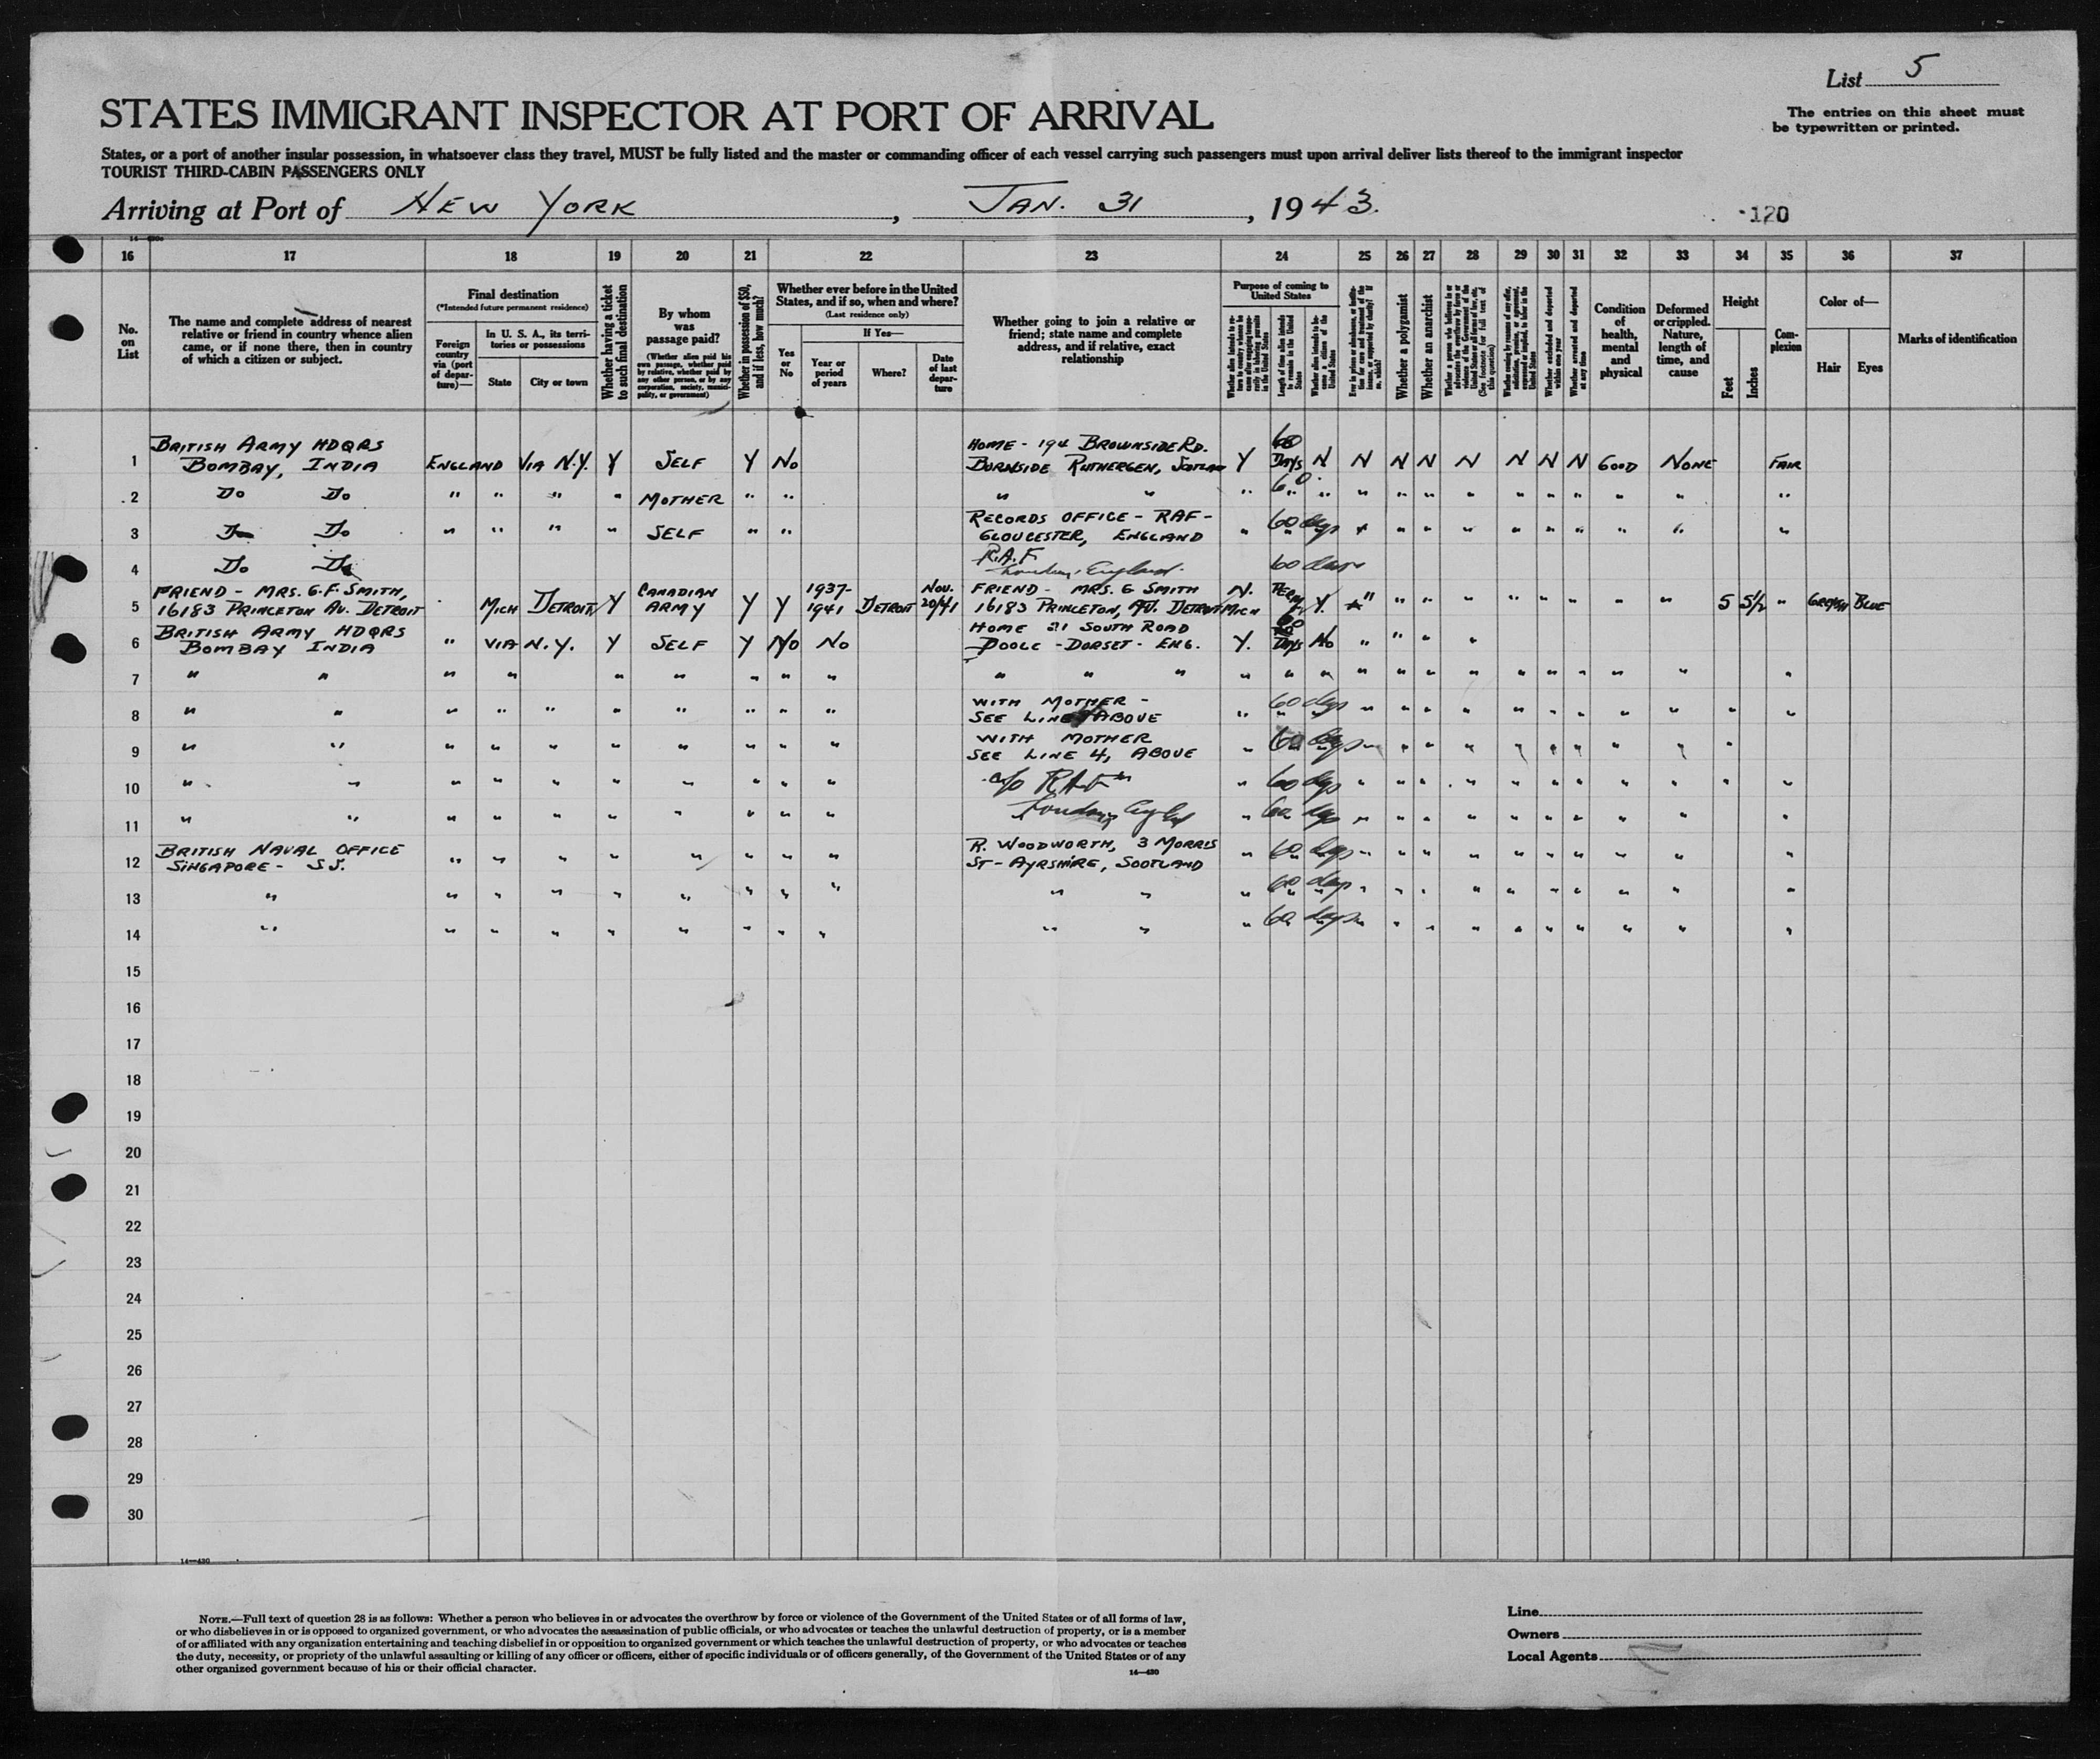 List 5
STATES IMMIGRANT INSPECTOR AT PORT OF ARRIVAL
The entries on this sheet must
be typewritten or printed.
States, or a port of another insular possession, in whatsoever class they travel, MUST be fully listed and the master or commanding officer of each vessel carrying such passengers must upon arrival deliver lists thereof to the immigrant inspector
TOURIST THIRD-CABIN PASSENGERS ONLY
Arriving at Port of NEW YORK, JAN. 31, 1943.
120
16 17 18 19 20 21 22 23 24 25 26 27 28 29 30 31 32 33 34 35 36 37
No. on List
The name and complete address of nearest relative or friend in country whence alien came, or if none there, then in country of which a citizen or subject.
Final destination
(*Intended future permanent residence)
Foreign country via (port of departure)—
In U. S. A., its territories or possessions
State
City or town
Whether having a ticket to such final destination
By whom was passage paid?
(Whether alien paid his own passage, whether paid by relative, whether paid by any other person, or by any corporation, society, municipality, or government)
Whether in possession of $50, and if less, how much?
Whether ever before in the United States, and if so, when and where?
(Last residence only)
Yes or No
If Yes—
Year or period of years
Where?
Date of last departure
Whether going to join a relative or friend; state name and complete address, and if relative, exact relationship
Purpose of coming to United States
Length of time alien intends to remain in the United States
Whether a polygamist
Whether an anarchist
Whether excluded and deported within one year
Whether arrested and deported at any time
Condition of health, mental and physical
Deformed or crippled. Nature, length of time, and cause
Height
Feet
Inches
Complexion
Color of—
Hair
Eyes
Marks of identification
1 BRITISH ARMY HDQRS BOMBAY, INDIA ENGLAND VIA N.Y. Y SELF Y NO HOME - 194 BROWNSIDE RD. BURNSIDE RUTHERGEN, SCOTLAND Y 60 DAYS N N N N N N N N GOOD NONE FAIR
2 DO DO " " " " MOTHER " " " " " 60 " " " " " " " " " " "
3 DO DO " " " " SELF " " RECORDS OFFICE - RAF - GLOUCESTER, ENGLAND " 60 days " " " " " " " " "
4 DO DO R.A.F. London, England. 60 days
5 FRIEND - MRS. G.F. SMITH, 16183 PRINCETON AV. DETROIT MICH DETROIT Y CANADIAN ARMY Y Y 1937-1941 DETROIT NOV. 20/41 FRIEND - MRS. G SMITH 16183 PRINCETON, AV. DETROIT MICH N. PERM Y. " " " " " " " " " 5 5½ " BLUE
6 BRITISH ARMY HDQRS BOMBAY INDIA " VIA N.Y. Y SELF Y NO NO HOME 21 SOUTH ROAD POOLE - DORSET - ENG. Y. 60 DAYS NO " " " "
7 " " " " " " " " " " " " " " " " " " " " " " " " "
8 " " " " " " " " " " WITH MOTHER - SEE LINE ABOVE " 60 days " " " " " " " " " " "
9 " " " " " " " " " " WITH MOTHER SEE LINE 4, ABOVE " 60 days " " " " " " " " " "
10 " " " " " " " " " " c/o RAF " 60 days " " " " " " " " " " "
11 " " " " " " " " " " London " 60 days " " " " " " " " " "
12 BRITISH NAVAL OFFICE SINGAPORE - S.S. " " " " " " " " R. WOODWORTH, 3 MORRIS ST - AYRSHIRE, SCOTLAND " 60 days " " " " " " " " " "
13 " " " " " " " " " " " " 60 days " " " " " " " " " "
14 " " " " " " " " " " " " 60 days " " " " " " " " " "
15
16
17
18
19
20
21
22
23
24
25
26
27
28
29
30
14—430
NOTE.—Full text of question 28 is as follows: Whether a person who believes in or advocates the overthrow by force or violence of the Government of the United States or of all forms of law,
or who disbelieves in or is opposed to organized government, or who advocates the assassination of public officials, or who advocates or teaches the unlawful destruction of property, or is a member
of or affiliated with any organization entertaining and teaching disbelief in or opposition to organized government or which teaches the unlawful destruction of property, or who advocates or teaches
the duty, necessity, or propriety of the unlawful assaulting or killing of any officer or officers, either of specific individuals or of officers generally, of the Government of the United States or of any
other organized government because of his or their official character.
14—430
Line
Owners
Local Agents